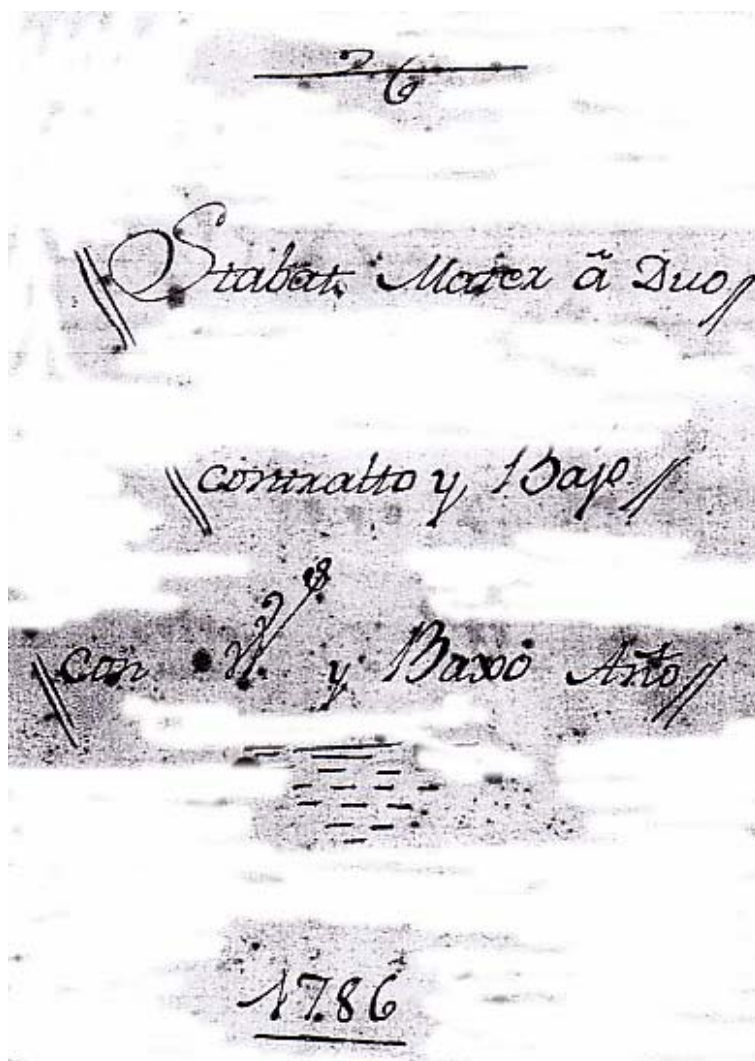 26
Stabat Mater â Duo
contralto y Bajo
con VV.s y Baxo Anto
1786